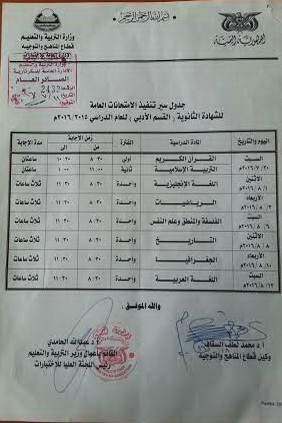 بسم الله الرحمن الرحيم
الجمهورية اليمنية
وزارة التربية والتعليم
قطاع المناهج والتوجيه
وزارة التربية والتعليم
الصادر العام
2432
جدول سير تنفيذ الامتحانات العامة
للشهادة الثانوية / القسم الأدبي / للعام الدراسي ٢٠١٥/٢٠١٦م
اليوم والتاريخ المادة الدراسية الفترة زمن الإجابة من إلى مدة الإجابة
السبت القرآن الكريم أولى ٨.٣٠ ١٠.٣٠ ساعتان
٢٠١٦/٧/٣٠م التربية الإسلامية ثانية ١١.٠٠ ١.٠٠ ساعتان
الاثنين ٢٠١٦/٨/١م اللغة الإنجليزية واحدة ٨.٣٠ ١١.٣٠ ثلاث ساعات
الأربعاء ٢٠١٦/٨/٣م الرياضيات واحدة ٨.٣٠ ١١.٣٠ ثلاث ساعات
السبت ٢٠١٦/٨/٦م الفلسفة والمنطق وعلم النفس واحدة ٨.٣٠ ١١.٣٠ ثلاث ساعات
الاثنين ٢٠١٦/٨/٨م التاريخ واحدة ٨.٣٠ ١١.٣٠ ثلاث ساعات
الأربعاء ٢٠١٦/٨/١٠م الجغرافيا واحدة ٨.٣٠ ١١.٣٠ ثلاث ساعات
السبت ٢٠١٦/٨/١٣م اللغة العربية واحدة ٨.٣٠ ١١.٣٠ ثلاث ساعات
والله الموفق،
أ.د محمد لطف السقاف
وكيل قطاع المناهج والتوجيه
د. عبدالله الحامدي
القائم بأعمال وزير التربية والتعليم
رئيس اللجنة العليا للاختبارات